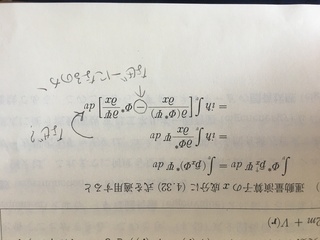 2m + V(r)
運動量演算子の x 成分に (4.32) 式を適用すると
∫_v Φ* p̂_x^† Ψ dv = ∫_v (p̂_x Φ)* Ψ dv
= iħ ∫_v ∂Φ*/∂x Ψ dv
= iħ ∫_v [∂(Φ*Ψ)/∂x − Φ* ∂Ψ/∂x] dv
なぜ?
なぜ−になるのか